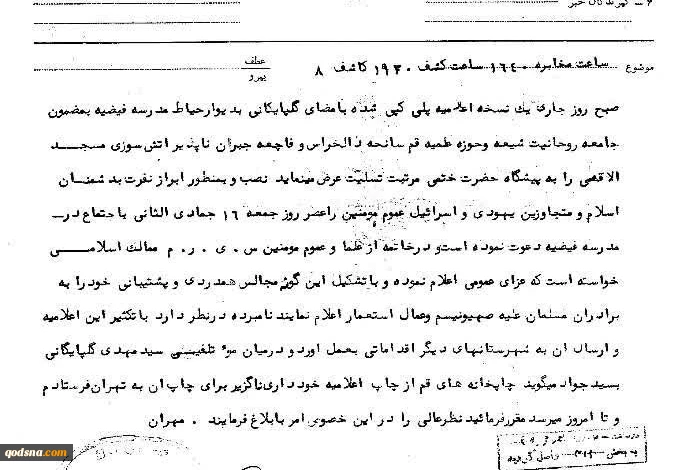 ۶ - گیرندگان خبر
موضوع ساعت مخابره ۱۶۴۰ ساعت کشف ۱۹۳۰ کاشف ۸ عطف
پیرو
صبح روز جاری یك نسخه اعلامیه پلی کپی شده بامضای گلپایگانی بدیوارحیاط مدرسه فیضیه بمضمون
جامعه روحانیت شیعه وحوزه علمیه قم سانحه دالخراس و فاجعه جبران ناپذیر اتش سوزی مسجد
الاقصی را به پیشگاه حضرت ختمی مرتبت تسلیت عرض مینماید نصب و بمنظور ابراز نفرت بدشمنان
اسلام و متجاوزین یهودی و اسرائیل عموم مومنین راعصر روز جمعه ۱۶ جمادی الثانی با جتماع در
مدرسه فیضیه دعوت نموده است و درخاتمه از علما و عموم مومنین س . ی . ر . م ممالك اسلامی
خواسته است که عزای عمومی اعلام نموده و باتشکیل این گونه مجالس همدردی و پشتیبانی خودرا به
برادران مسلمان علیه صهیونیسم وعمال استعمار اعلام نمایند نامبرده درنظر دارد باتکثیر این اعلامیه
و ارسال ان به شهرستانهای دیگر اقداماتی بعمل اورد و درمیان موء تلفینی سید مهدی گلپایگانی
بسید جواد میگوید چاپخانه های قم از چاپ اعلامیه خود داری ناگزیر برای چاپ ان به تهران فرستادم
و تا امروز میرسد مقررفرمائید نظرعالی را در این خصوص امر بابلاغ فرمایند . مهران
qodsna.com